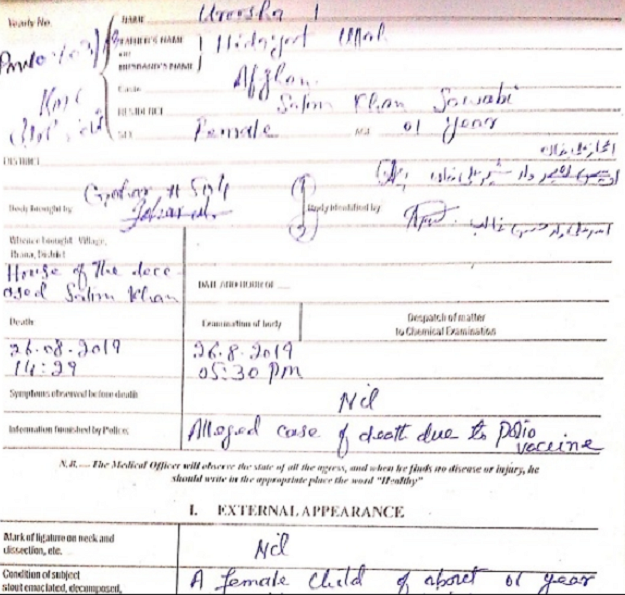 Yearly No.
NAME Uroosha
FATHER'S NAME
OR
HUSBAND'S NAME
Hidayat Ullah
Caste Afghan
RESIDENCE Salim Khan Sawabi
SEX Female AGE 01 year
DISTRICT
Body brought by
Body identified by
Whence brought Village,
Thana, District
House of the dece-
ased Salim Khan
DATE AND HOUR OF
Death
Examination of body
Despatch of matter
to Chemical Examination
26.08.2019
14:29
26.8.2019
05:30 pm
Symptoms observed before death Nil
Information furnished by Police, Alleged case of death due to Polio
vaccine
N.B. — The Medical Officer will observe the state of all the agress, and when he finds no disease or injury, he
should write in the appropriate place the word "Healthy"
I. EXTERNAL APPEARANCE
Mark of ligature on neck and
dissection, etc. Nil
Condition of subject
stout emaciated, decomposed, A female child of about 01 year